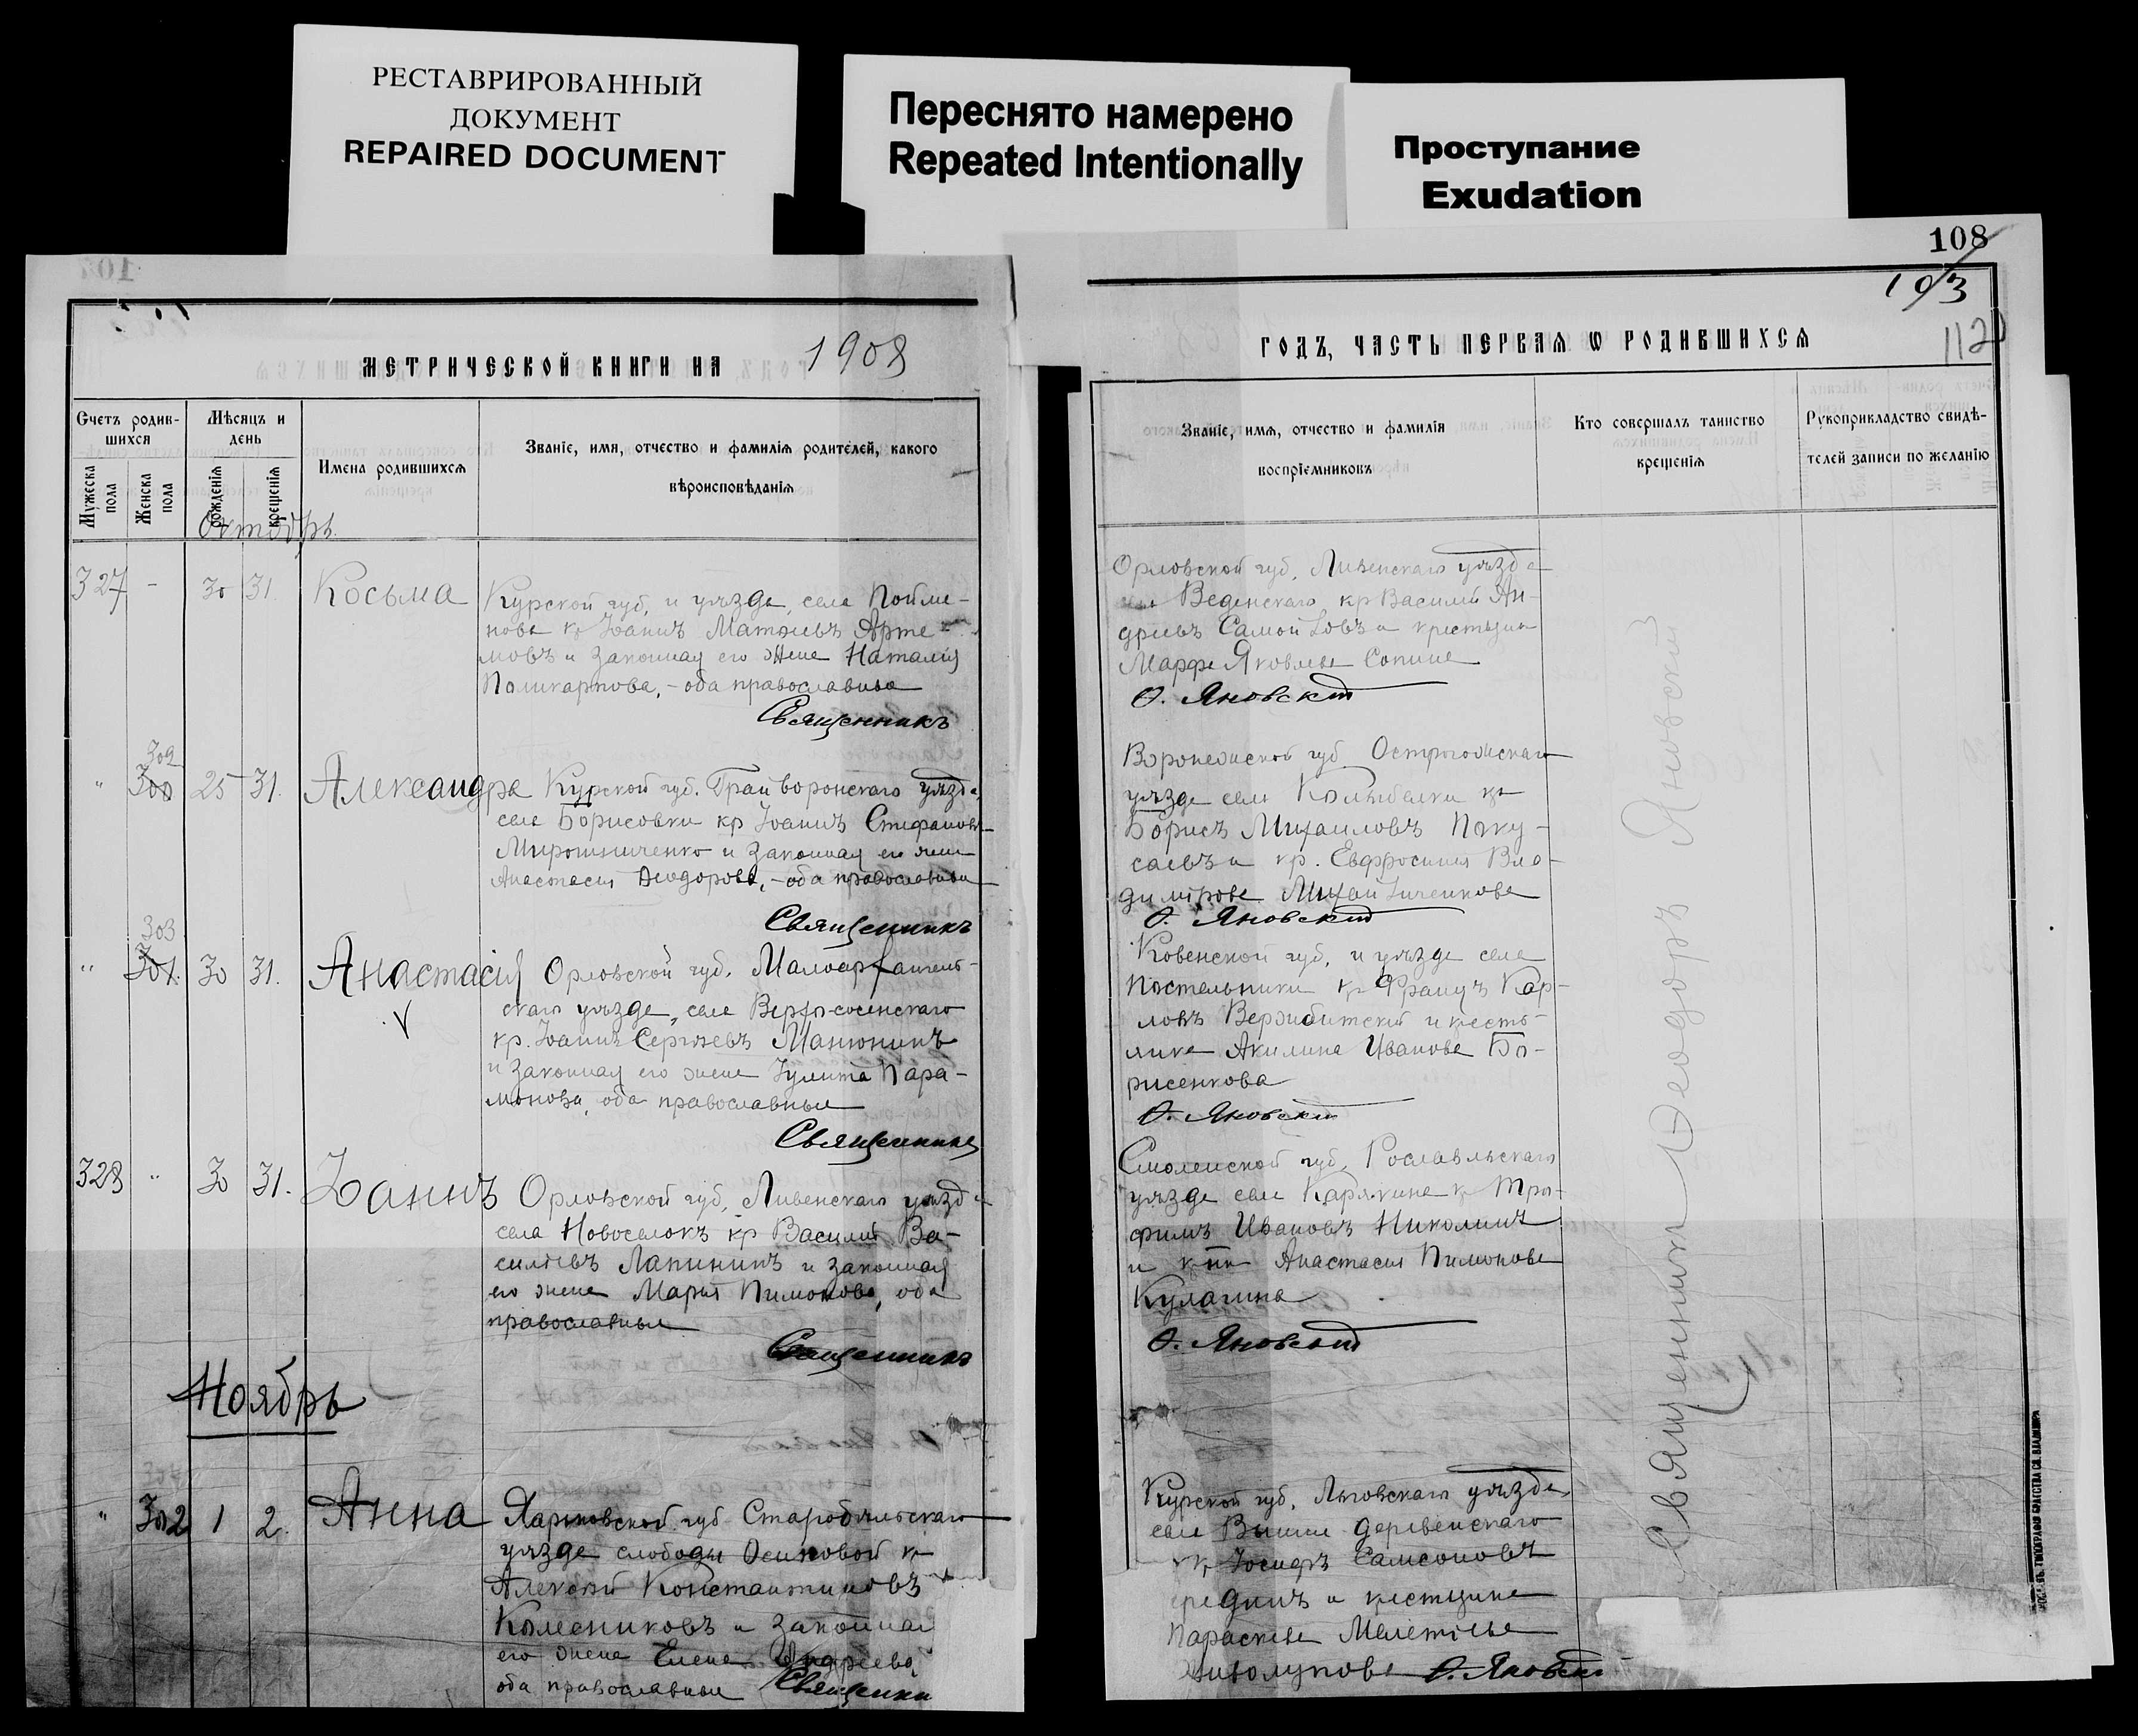 РЕСТАВРИРОВАННЫЙ
ДОКУМЕНТ
REPAIRED DOCUMENT
Переснято намерено
Repeated Intentionally
Проступание
Exudation
108
103
112
МЕТРИЧЕСКОЙ КНИГИ НА 1908
ГОДЪ, ЧАСТЬ ПЕРВАЯ Ѡ РОДИВШИХСЯ
Счетъ родив-
шихся
Мужеска
пола
Женска
пола
Мѣсяцъ и
день
рожденія
крещенія
Имена родившихся
Званіе, имя, отчество и фамилія родителей, какого
вѣроисповѣданія
Званіе, имя, отчество и фамилія
воспріемниковъ
Кто совершалъ таинство
крещенія
Рукоприкладство свидѣ-
телей записи по желанію
Октябрь
327 - 30 31. Косьма
Курской губ, и уѣзда, села Пойме-
нова кр Іоаннъ Матѳіевъ Арте-
мовъ и законная его жена Наталія
Поликарпова, - оба православные
Священникъ
Орловской губ, Ливенскаго уѣзда
Веденскаго кр Василій Ан-
дреевъ Самойловъ и крестьян
Марфа Яковлева Сопина
Ѳ. Яновскій
302
" 300 25 31. Александра
Курской губ. Грайворонскаго уѣзда,
села Борисовки кр Іоаннъ Стефановъ
Мирошниченко и законная его жена
Анастасія Ѳеодорова, - оба православные
Священникъ
Воронежской губ Острогожскаго
уѣзда села Колыбелки кр
Борисъ Михаиловъ Поку-
саевъ и кр. Евфросинія Вла-
димірова Михайличенкова
Ѳ. Яновскій
303
" 301. 30 31. Анастасія
Орловской губ. Малоархангель-
скаго уѣзда, села Верхо-сосенскаго
кр. Іоаннъ Сергѣевъ Манюнинъ
и законная его жена Іулита Пара-
монова, оба православные
Священникъ
Ковенской губ, и уѣзда села
Постельники кр Францъ Кар-
ловъ Вержбитскій и кресть-
янка Акилина Иванова Бо-
рисенкова
Ѳ. Яновскій
328 " 30 31. Іоаннъ
Орловской губ, Ливенскаго уѣзда
села Новоселокъ кр Василій Ва-
силіевъ Лапининъ и законная
его жена Марія Пимонова, оба
православные
Священникъ
Смоленской губ, Рославльскаго
уѣзда села Карякина кр Тро-
фимъ Ивановъ Николинъ
и Анастасія Пимонова
Кулагина
Ѳ. Яновскій
Ноябрь
" 302 1 2. Анна
Харьковской губ Старобѣльскаго
уѣзда слободы Осиновой кр
Алексѣй Константиновъ
Колесниковъ и законная
его жена Елена Андреева,
оба православные Священник
Курской губ, Льговскаго уѣзда,
села Вышне деревенскаго
кр Іосифъ Самсоновъ
и крестьянка
Параскева Мелетіева
Ѳ. Яновскій
Священникъ Ѳеодоръ Яновскій